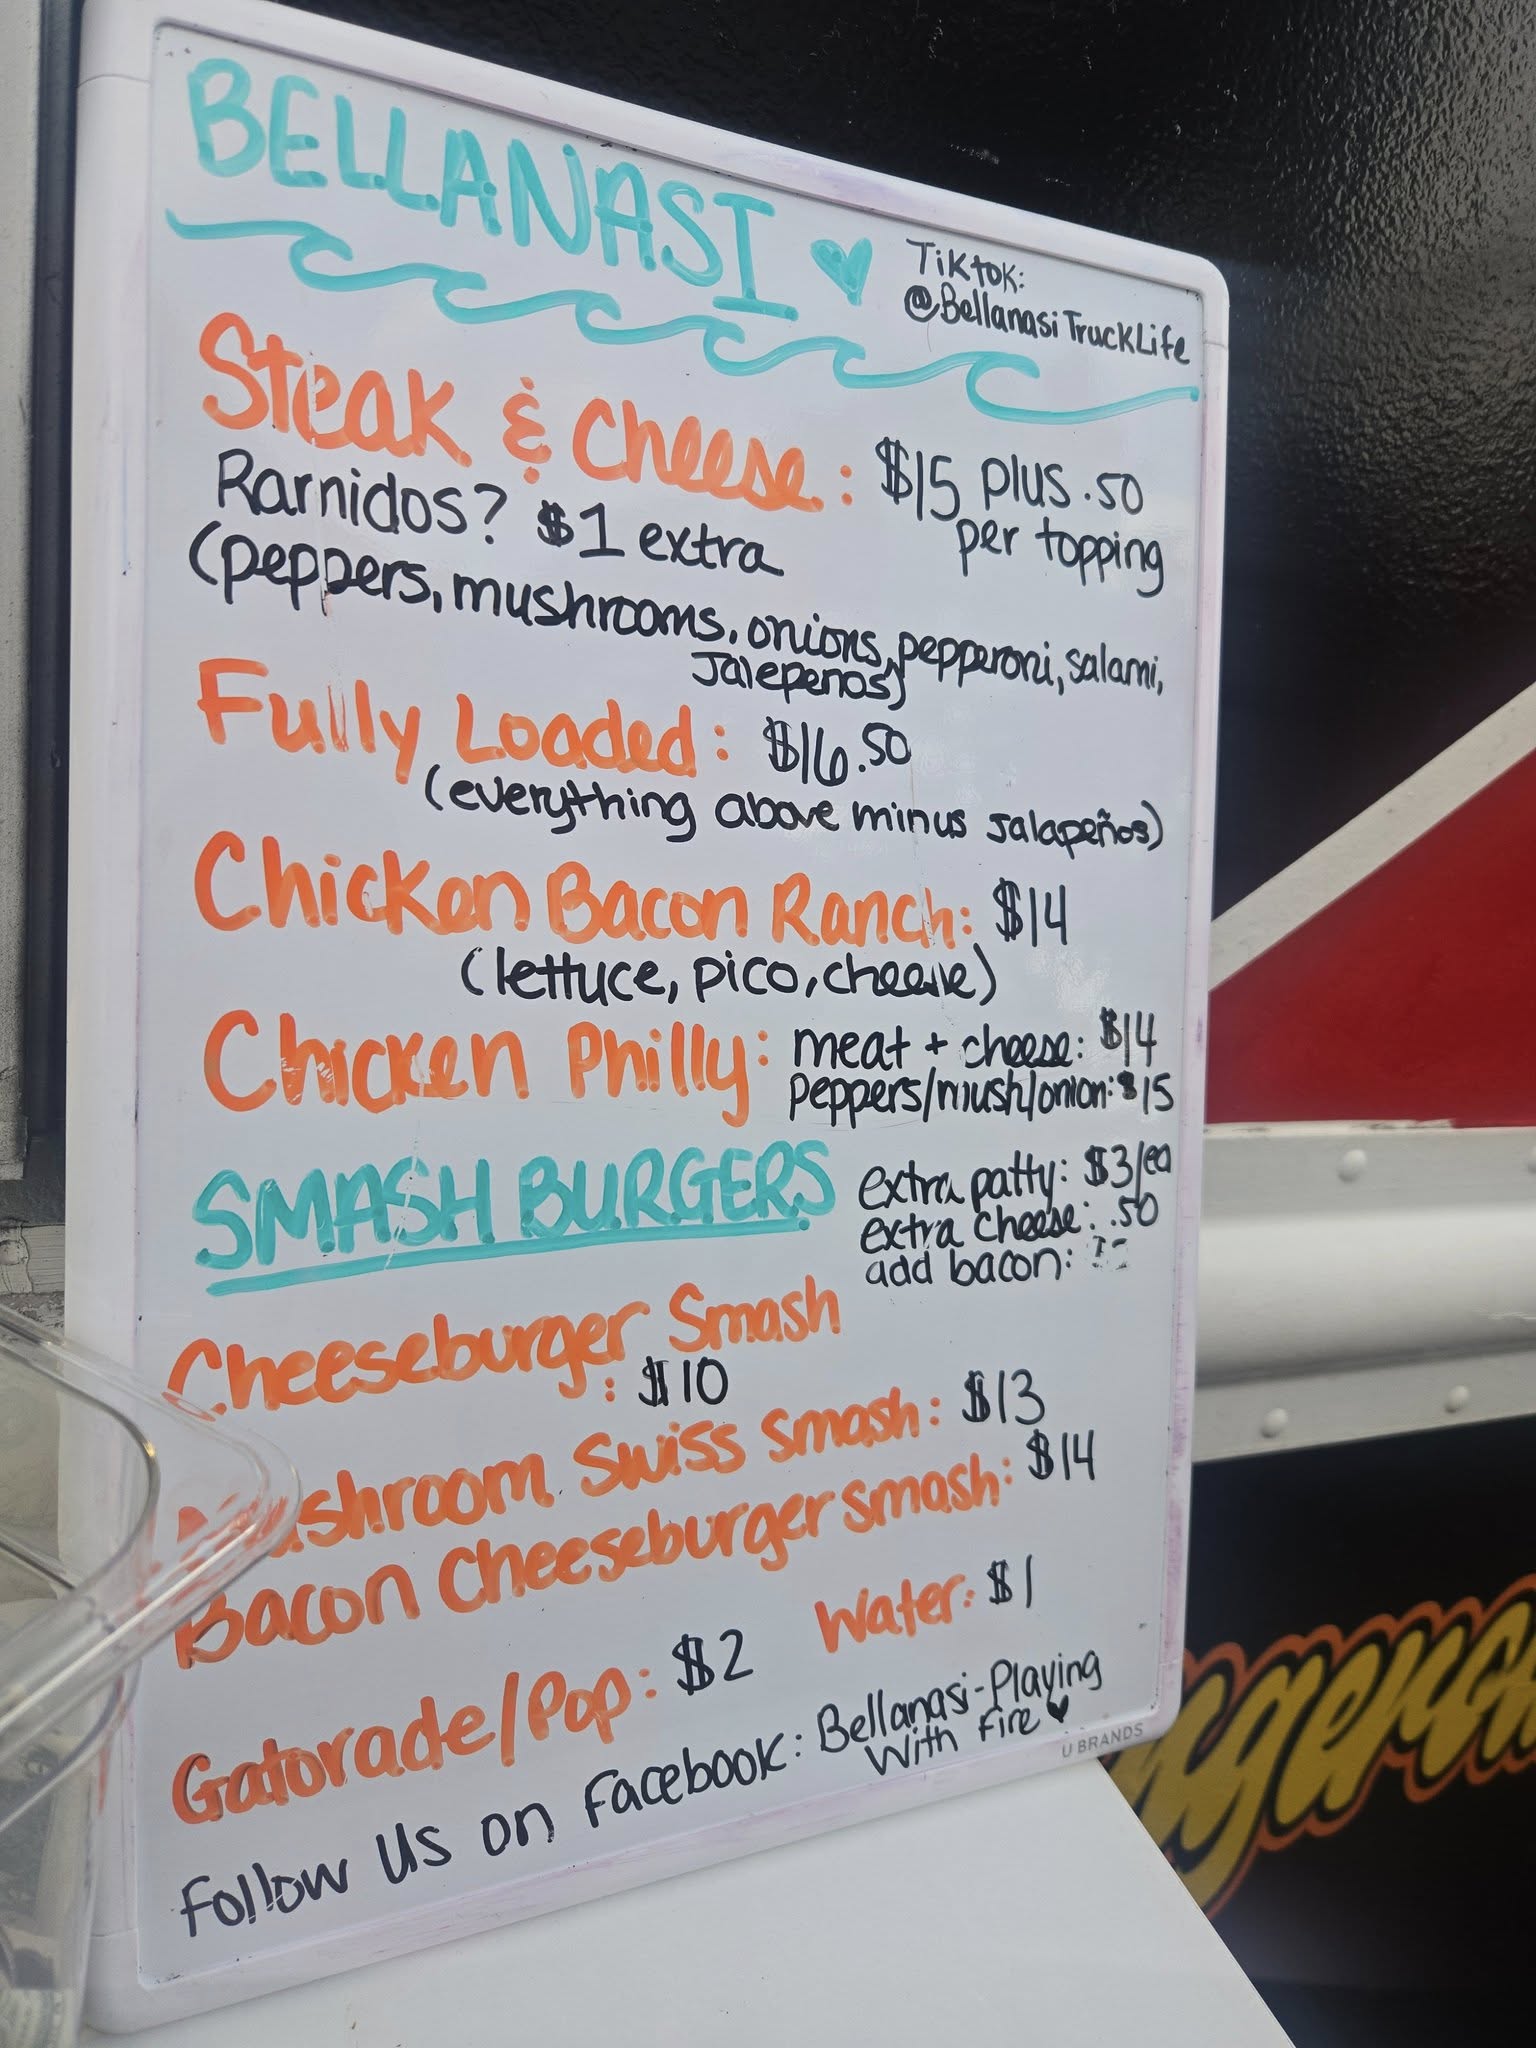 BELLANASI
Tiktok:
@BellanasiTruckLife
Steak & Cheese: $15 plus .50
per topping
Rarnidos? $1 extra
(peppers, mushrooms, onions, pepperoni, salami,
Jalepenos)
Fully Loaded: $16.50
(everything above minus Jalapeños)
Chicken Bacon Ranch: $14
(lettuce, pico, cheese)
Chicken Philly: meat + cheese: $14
peppers/mush/onion: $15
SMASH BURGERS
extra patty: $3/ea
extra cheese: .50
add bacon:
Cheeseburger Smash
: $10
Mushroom Swiss Smash: $13
Bacon Cheeseburger Smash: $14
Gatorade/Pop: $2
Water: $1
Follow us on Facebook: Bellanasi-Playing
With Fire
U BRANDS